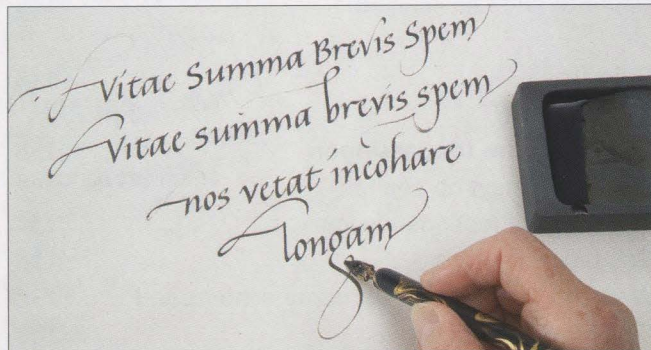 Vitae Summa Brevis Spem
Vitae summa brevis spem
nos vetat incohare
longam